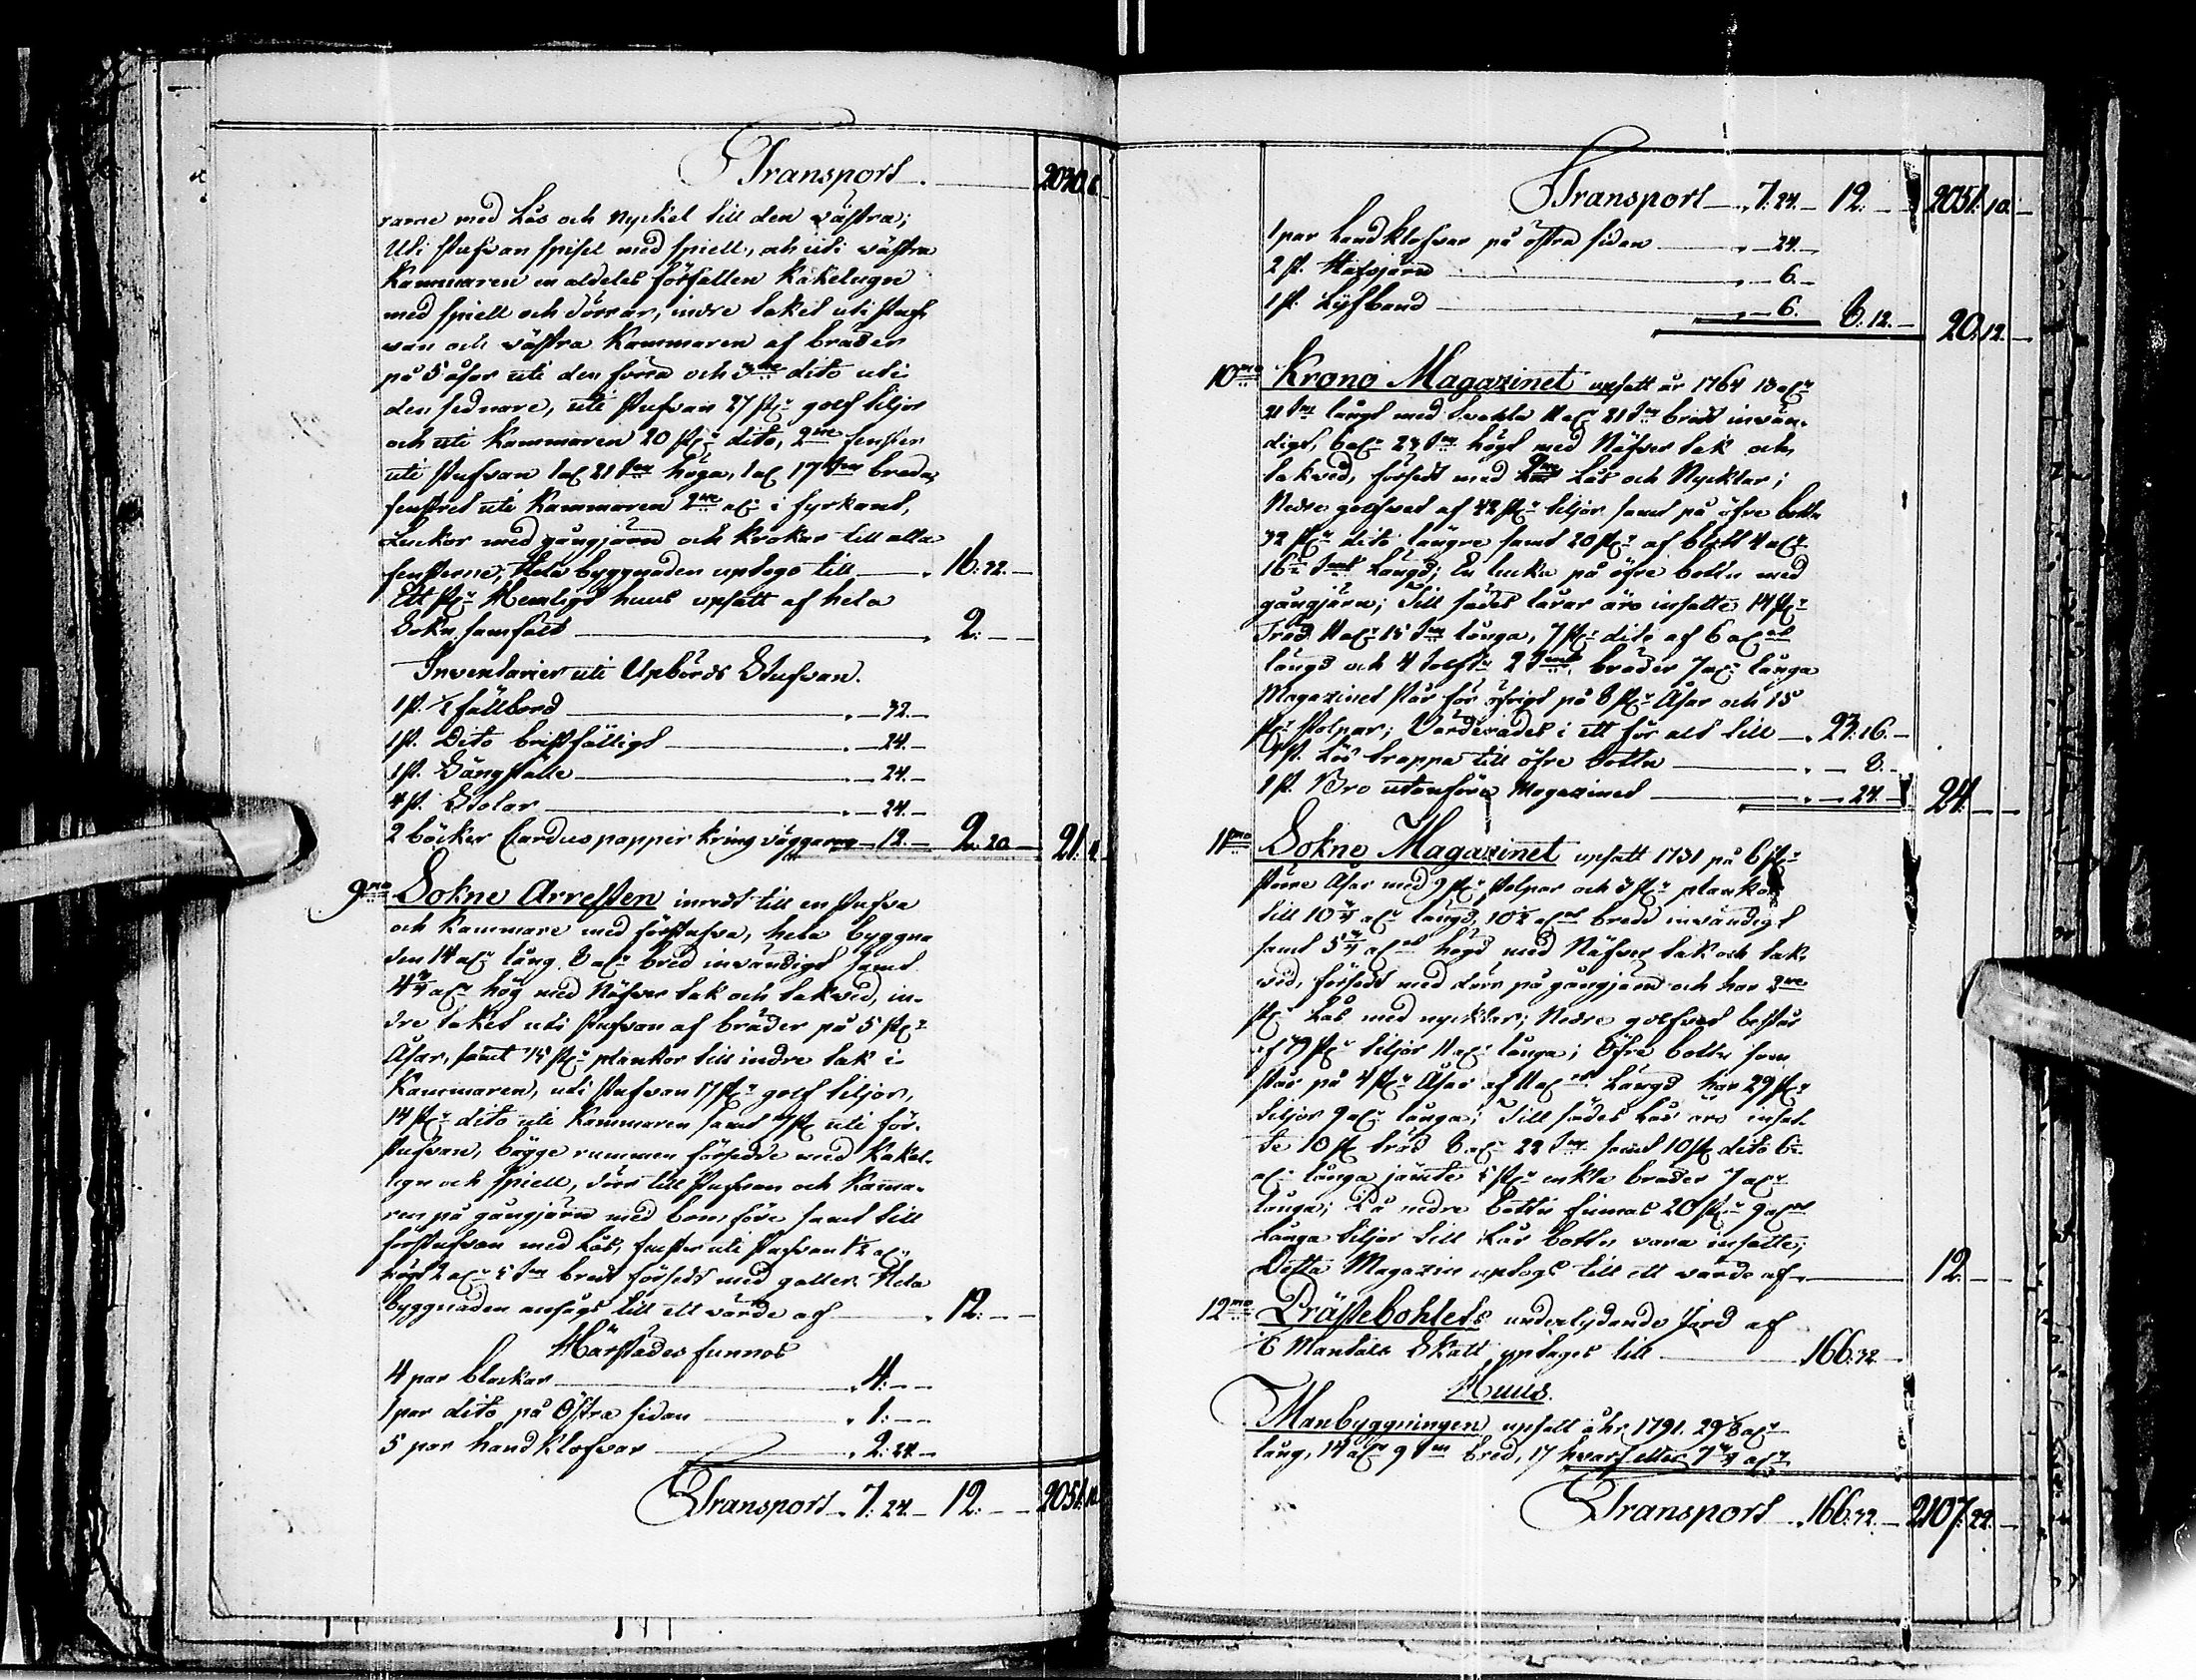 Transport. 2030. 6.
rarne med Lås och Nyckel till den västra;
Uti Stufvan spisel med spiell, och uti västra
Kammaren en aldeles förfallen Kakelugn
med spiell och dörrar, indre taket uti Stuf-
van och västra Kammaren af bräder
på 5 åsar uti den förra och 3ne dito uti
den sednare, uti Stufvan 27 st. golf tiljor
och uti Kammaren 20 st. dito, 2ne fenster
uti Stufvan 1 al. 21 tm höga, 1 al. 17 tm breda,
fenstret uti Kammaren 2ne al. i fyrkant,
Luckor med gångjärn och Krokar till alla
fensterne, Hela byggnaden uptogs till 16: 32.
Ett st. Hemligt huus upsatt af hela
Sokn samfält 2: —
Inventarier uti Upbörds Stufvan.
1 st. fällbord 32.
1 st. Dito bristfälligt 24.
1 st. Sängställe 24.
4 st. Stolar 24.
2 böcker Carduspapper kring väggarne 12. 2. 20 21. 4.
9no Sokne Arresten inredt till en Stufva
och Kammare med förstufva, hela byggna
den 14 al. lång 8 al. bred invändigt samt
4 3/4 al. hög med Näfver tak och takved, in-
dre taket uti Stufvan af bräder på 5 st.
Åsar, samt 15 st. plankor till indre tak i
Kammaren, uti Stufvan 17 st. golf tiljor,
14 st. dito uti Kammaren samt 7 st. uti för-
stufvan, bägge rummen försedde med Kakel-
ugn och spiell, dörr till Stufvan och Kamma-
ren på gångjärn med bom före samt till
förstufvan med Lås, fenster uti Stufvan 1 1/2 al.
högt 2 al. 5 tm bredt försedt med galler. Hela
byggnaden ansågs till ett värde af 12: —
Härstädes funnos
4 par black­ar 4: —
1 par dito på Östra sidan 1: —
5 par handklofvar 2: 24.
Transport 7: 24. 12: — 2051. 10.
Transport 7. 24. 12. 2051. 10.
1 par handklofvar på östra sidan 24.
2 st. Halsjärn 6.
1 st. Lifband 6. 8. 12. 20. 12.
10mo Krono Magazinet upsatt år 1764 13 al.
21 tm långt med 11 al. 21 tm bredt invän-
digt, 6 al. 23 tm högt med Näfver tak och
takved, försedt med 2ne Lås och Nycklar;
Nedre golfvet af 42 st. tiljor samt på öfre bottn
32 st. dito längre samt 20 st. af blott 4 al.
16 tms Längd; En lucka på öfre bottn med
gångjärn; Till sädes lårar äro insatte 14 st.
Träd 11 al. 15 tm långa, 7 st. dito af 6 al.
längd och 4 tolfter 2 tums bräder 7 al. långa
Magazinet står för öfrigt på 8 st. Åsar och 15
st. stolpar; Värderades i ett för alt till 23: 16.
1 st. Lös trappa till öfre bottn 8.
1 st. Bro utanföre Magazinet 24. 24. —
11mo Sokne Magazinet upsatt 1731 på 6 st.
större Åsar med 9 st. stolpar och 3 st. plankor
till 10 3/4 al. längd, 10 1/2 al. bredd invändigt
samt 5 3/4 al. högd med Näfver tak och tak-
ved, försedt med dörr på gångjärn och har 2ne
st. Lås med nycklar; Nedre golfvet består
af 39 st. tiljor 11 al. långa; Öfre bottn som
står på 4 st. Åsar af 11 al. Längd har 29 st.
tiljor 9 al. långa; Till sädes Lår äro insat-
te 10 st. träd 8 al. 22 tm samt 10 st. dito 6
al. långa jämte 5 st. enkla bräder 7 al.
långa; På nedre bottn finnas 20 st. 9 al.
långa tiljor till Lår bottn vara insatte;
Detta Magazin uptogs till ett värde af 12. —
12mo Prästebohlets underlydande Jord af
6 Mantals Skatt uptages till 166: 32.
Huus.
Manbyggningen upsatt åhr 1791. 29 al.
lång, 14 al. 9 tm bred, 17 hvarf eller 7 3/4 al.
Transport 166: 32. 2107. 22.